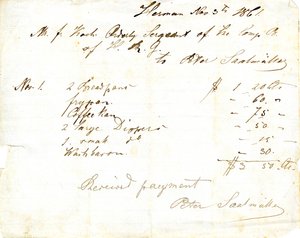 Herman Nov 3th 1861
Mr. J. Orderly Sergeant of the Comp B.
of H. R. G.
to Peter Saalmüller
Nov 1. 2 Breadpans $ 1 20 Cts.
Frypan " 60 "
Coffee Kan " 75 "
2 large Dippers " 50 "
1 small do " 15 "
Washbason " 30 "
$ 3 50 Cts.
Received payment
Peter Saalmüller